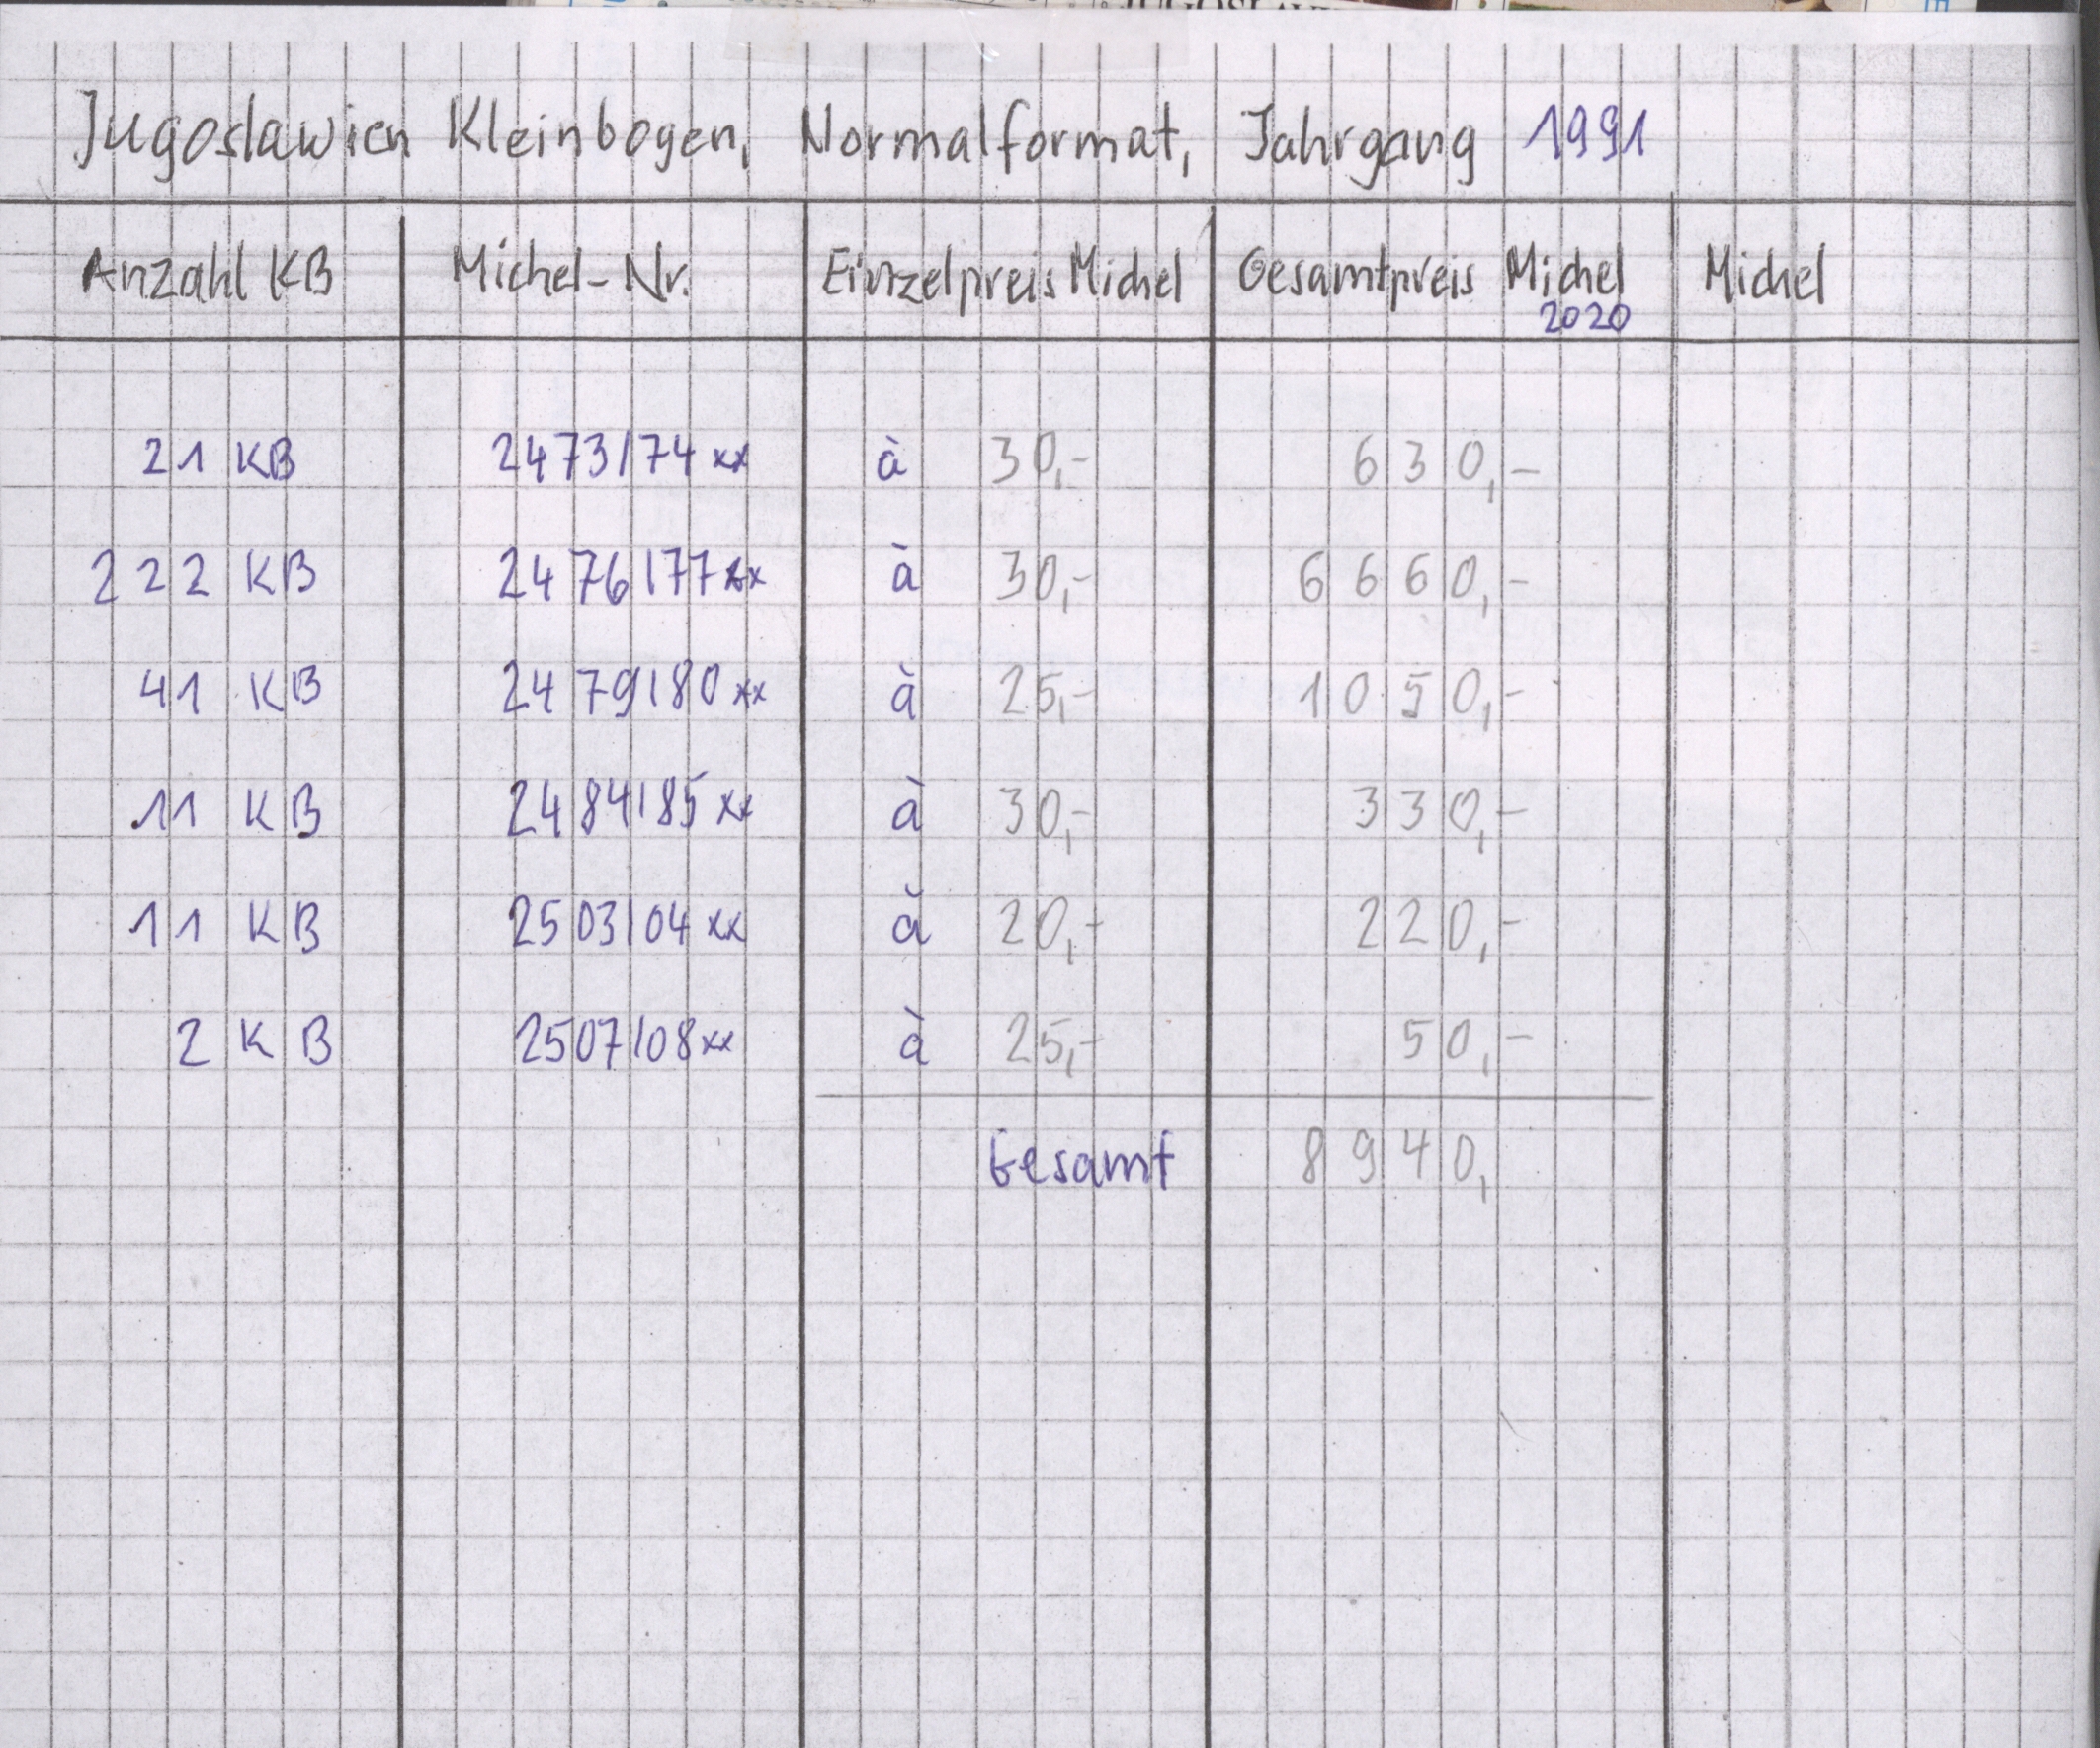 Jugoslawien Kleinbogen, Normalformat, Jahrgang 1991
Anzahl KB Michel-Nr. Einzelpreis Michel Gesamtpreis Michel 2020 Michel
21 KB 2473/74 xx à 30,- 630,-
222 KB 2476/77 xx à 30,- 6660,-
41 KB 2479/80 xx à 25,- 1050,-
11 KB 2484/85 xx à 30,- 330,-
11 KB 2503/04 xx à 20,- 220,-
2 KB 2507/08 xx à 25,- 50,-
Gesamt 8940,